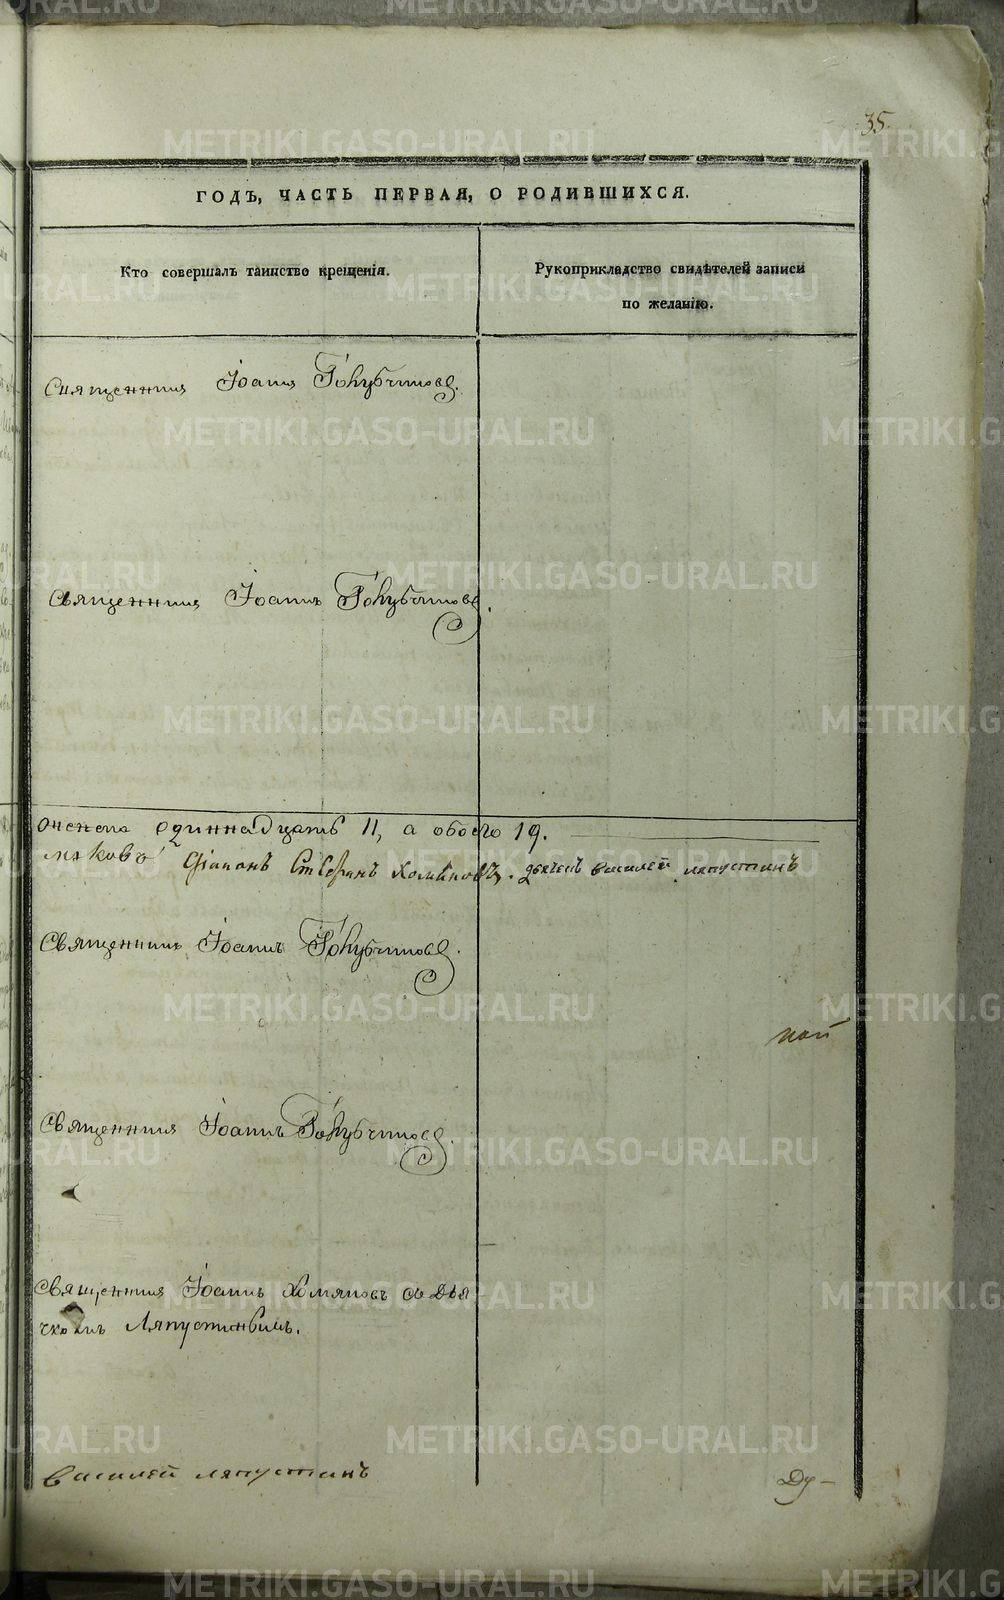 35.
ГОДЪ, ЧАСТЬ ПЕРВАЯ, О РОДИВШИХСЯ.
Кто совершалъ таинство крещенія.
Рукоприкладство свидѣтелей записи
по желанію.
Священникъ Іоаннъ Голубчиковъ.
Священникъ Іоаннъ Голубчиковъ.
женска одиннадцать 11, а обоего 19.
мяковъ Діаконъ Стефанъ Хомяковъ. дьячекъ Василей Ляпустинъ
Священникъ Іоаннъ Голубчиковъ.
ной
Священникъ Іоаннъ Голубчиковъ.
Священникъ Іоаннъ Хомяковъ съ Дья
чкомъ Ляпустинымъ.
Василей Ляпустинъ
Ду-
METRIKI.GASO-URAL.RU